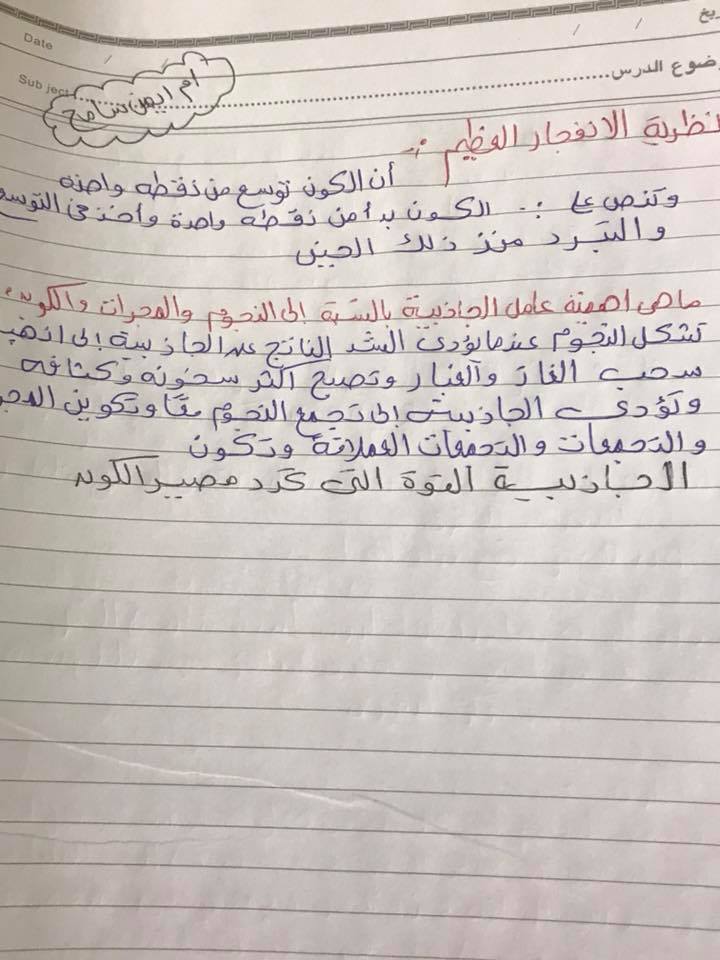 يخ
/ /
Date / /
ضوع الدرس
Subject
ام ايمن سامح
نظرية الانفجار العظيم :- أن الكون توسع من نقطة واحدة
وتنص على :- الكون بدأ من نقطة واحدة وأخذ في التوسع
والتبرد منذ ذلك الحين
ما هي اهمية عامل الجاذبية بالنسبة إلى النجوم والمجرات والكون
تشكل النجوم عندما يؤدي الشد الناتج عن الجاذبية إلى
سحب الغاز والغبار وتصبح أكثر سخونة وكثافة
وتؤدي الجاذبية إلى تجمع النجوم معًا وتكوين المجر
والتجمعات والتجمعات العملاقة وتكون
الجاذبية القوة التي تحدد مصير الكون